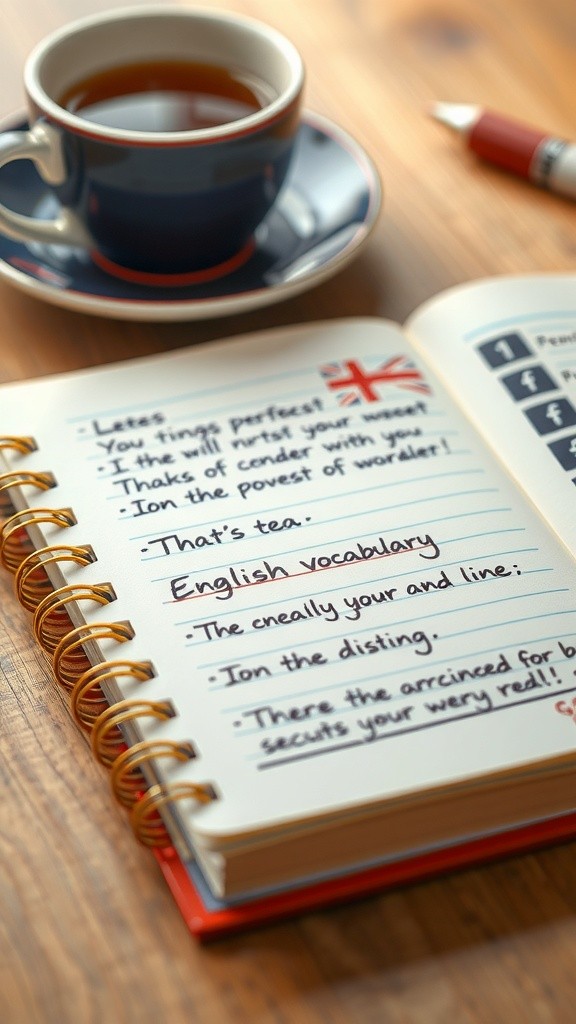 · Letes
You tings perfecs!
· I the will nrtst your weeet
Thaks of cender with you
· Ion the povest of wordler!
· That's tea.
English vocabulary
· The cneally your and line:
· Ion the disting.
· There the arrcinced for b
secuits your wery red!!
1
f
f